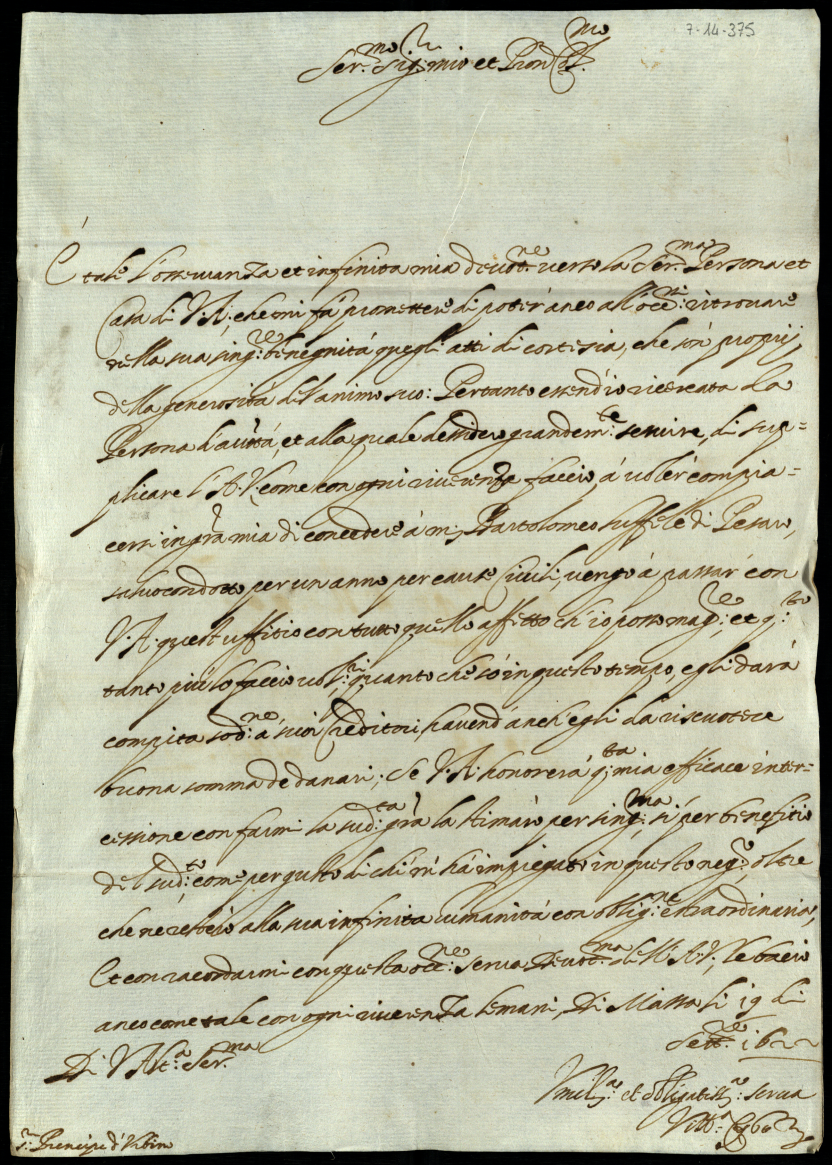 7-14-375
Ser.mo Sig.r mio et Pron Col.mo
È tale l'osservanza et infinita mia devot.ne verso la Ser.ma Persona et
Casa di V. A. che mi fà promettere di poter anco all'occ.ni ritrovare
nella sua sing.re benegnità quegli atti di cortesia, che son proprij
della generosità del'animo suo: Pertanto essend'io ricercata da
Persona d'autt.tà, et alla quale desidero grandem.te servire, di sup=
plicare l'A. V. come con ogni riverenza faccio, à voler compia=
cersi in gra mia di concedere à m. Bartolomeo Suffele di Pesaro,
salvocondotto per un anno per cause Civili, vengo à passar con
V. A. quest'uffitio con tutto quello affetto ch'io posso mag.re et q.to
tanto più lo faccio vol.ri quanto che sò in questo tempo, egli darà
compita sod.ne à suoi Creditori, havend'anch'egli da riscuotere
buona somma de danari; Se V. A. honorerà q.ta mia efficace inter=
cessione con farmi la sud.ta gra la stimarò per sing.ma, sì per benefitio
del sud.to come per gusto di chi m'hà impiegato in questo neg.o, oltre
che ne resterò alla sua infinita humanità con oblig.ne extraordinaria,
Et con racordarmi con questa occ.ne serva Devot.ma di V. A. V. le bacio
anco come tale con ogni riverenza le mani, Di Massa li 19 di
Sett.re 1622
Di V. Alt.a Ser.ma
Umil.ma et obligatiss.ma serva
Vitt.a Cybo
s.r Prencipe d'Urbino